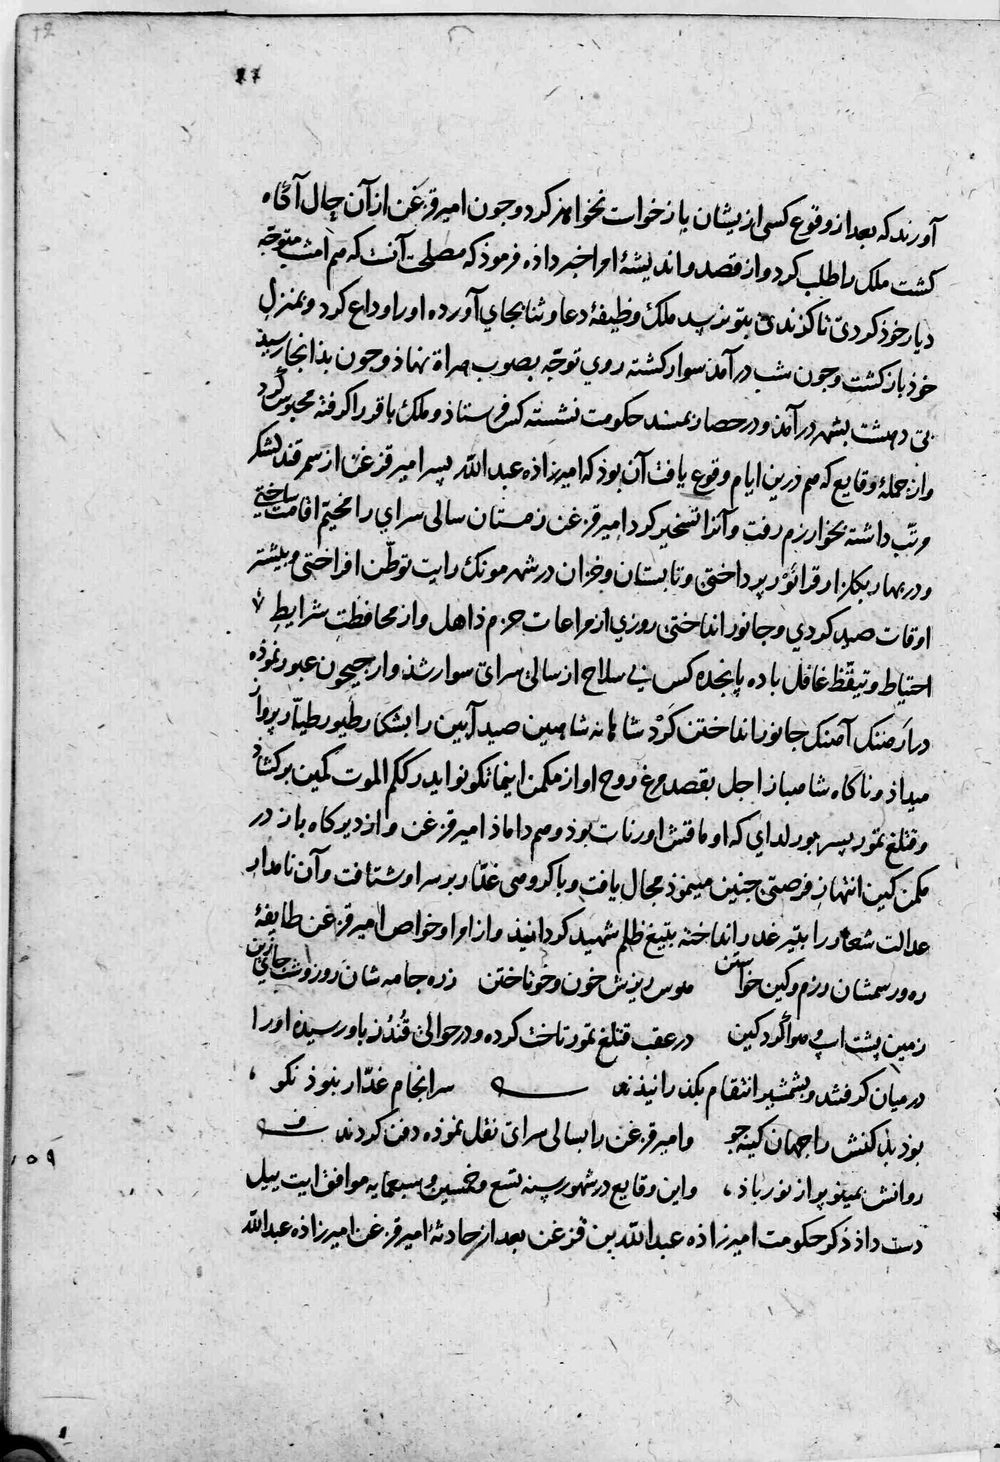 ۲۷
آورند که بعد از وقوع کسی ازیشان بازخواست نخواهد کرد و چون امیر قزغن از آن حال آگاه
کشت ملک را طلب کرد و از قصد و اندیشهٔ امرا خبر داده فرموذ که مصلحت آنست که هم امشب متوجّه
دیار خوذ کردی تا کزندی بتو نرسد ملک وظیفهٔ دعا و ثنا بجای آورده او را وداع کرد و بمنزل
خوذ باز کشت و چون شب درآمد سوار کشته روی توجّه بصوب هراة نهاذ و چون بذانجا رسید
بی دهشت بشهر درآمذ و در حصار بمسند حکومت نشسته کس فرستاذ و ملک باقر را کرفته محبوس کرد
و از جملهٔ وقایع که هم درین ایام وقوع یافت آن بوذ که امیرزاذه عبد اللّه پسر امیر قزغن از سمرقند لشکر
مرتّب داشته بخوارزم رفت و آنرا تسخیر کرد امیر قزغن زمستان سالی سرای را مخیّم اقامت ساختی
و در بهار بکلزار قرائوز پرداختی و تابستان و خزان در شهر مونک رایت توطّن افراختی و بیشتر
اوقات صید کردی و جانور انداختی روزی از مراعات حزم ذاهل و از محافظت شرایط
احتیاط و تیقّظ غافل با ده پانجده کس بی سلاح از سالی سرای سوار شذ و از جیحون عبور نموذه
در ارهنک آهنک جانور انداختن کرد شاهانه شاهین صید آیین را بشکار طیور طیّار پرواز
میداذ و ناکاه شاهباز اجل بقصد مرغ روح او از مکمن اینما تکونوا یدرککم الموت کمین برکشاد
و قتلغ تمور پسر بورلدای که اوماقش اورنات بوذ و هم داماذ امیر قزغن و از دیرکاه باز در
مکمن کین انتهاز فرصتی جنین مینموذ مجال یافت و با کروهی غدّار بر سر او شتافت و آن نامدار
عدالت شعار را بتیر غدر انداخته بتیغ ظلم شهید کردانیذند و از امرا و خواص امیر قزغن طایفهٔ
ره و رسمشان رزم و کین خواستن هوس ریزش خون و خو تاختن زره جامه شان روز و شب جای زین
زمین پشت اسپ و هوا کرد کین در عقب قتلغ تمور تاخت کرده و در حوالی قُندُز باو رسیده او را
در میان کرفتند و بشمشیر انتقام بکذرانیذند سرانجام غدّار نبوذ نکو
بوذ بد کنش را جهان کینه جو و امیر قزغن را بسالی سرای نقل نموذه دفن کردند
روانش بمینو پر از نور باذ، و این وقایع در شهور سنه تسع و خمسین و سبعمایه موافق ایت ییل
دست داذ ذکر حکومت امیرزاذه عبد اللّه بن قزغن بعد از حادثهٔ امیر قزغن امیرزاذه عبد اللّه